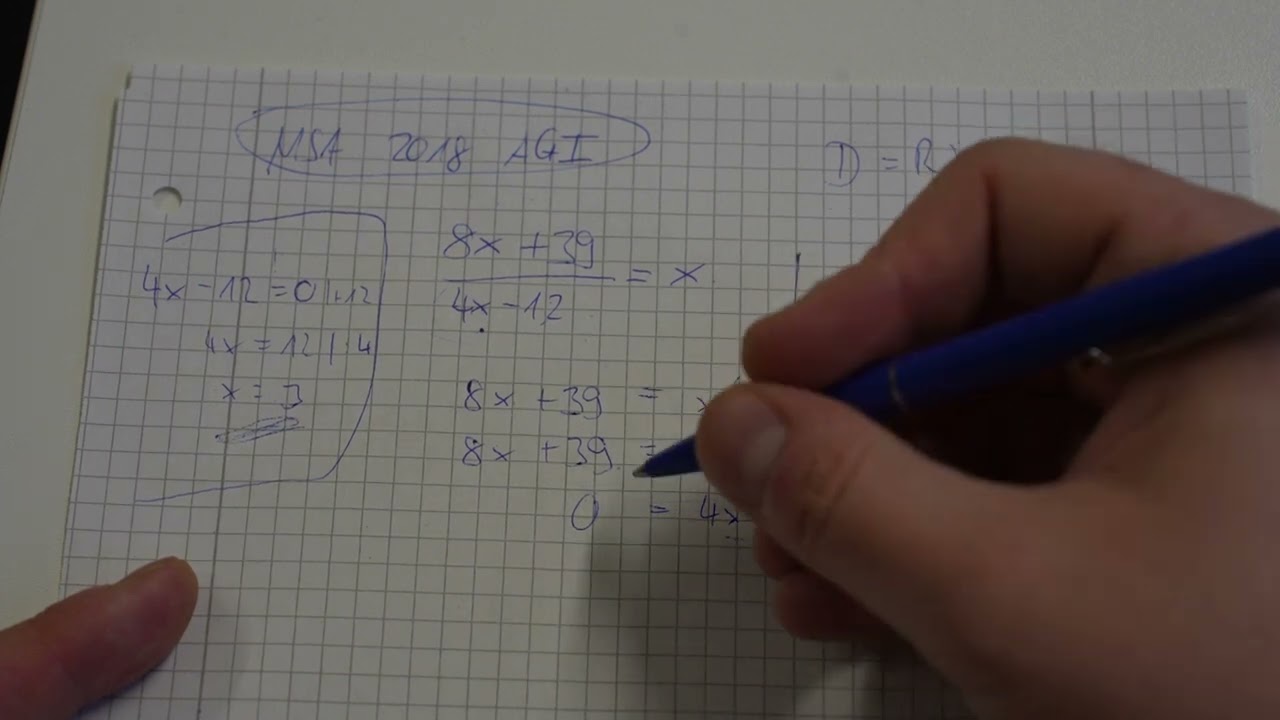 MSA 2018 AGI
D = R
4x - 12 = 0 | +12
4x = 12 | : 4
x = 3
8x + 39
————— = x
4x - 12
8x + 39 = x
8x + 39 =
0 = 4x